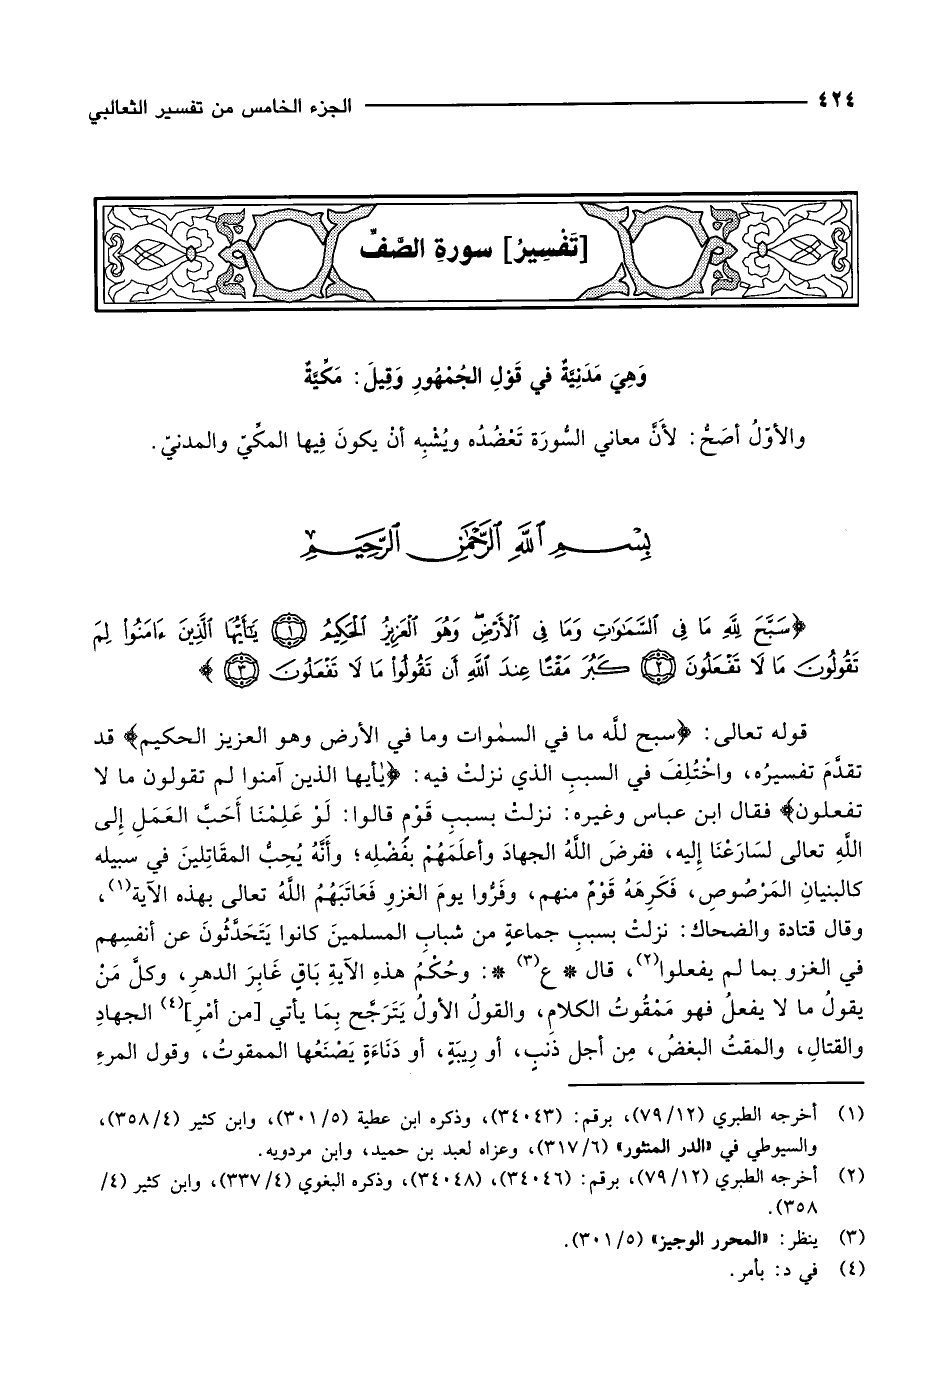 ٤٢٤ الجزء الخامس من تفسير الثعالبي
[تَفْسِيرُ] سورةِ الصَّفِّ
وَهِيَ مَدَنِيَّةٌ في قَوْلِ الجُمْهُورِ وَقِيلَ: مَكِّيَّةٌ
والأوّلُ أصَحُّ: لأنَّ معاني السُّورَة تَعْضُدُه ويُشْبِه أنْ يكونَ فِيها المكّيّ والمدنيّ.
بِسْمِ ٱللَّهِ ٱلرَّحْمَٰنِ ٱلرَّحِيمِ
﴿سَبَّحَ لِلَّهِ مَا فِي ٱلسَّمَٰوَٰتِ وَمَا فِي ٱلْأَرْضِۖ وَهُوَ ٱلْعَزِيزُ ٱلْحَكِيمُ ۝١ يَٰٓأَيُّهَا ٱلَّذِينَ ءَامَنُوا۟ لِمَ
تَقُولُونَ مَا لَا تَفْعَلُونَ ۝٢ كَبُرَ مَقْتًا عِندَ ٱللَّهِ أَن تَقُولُوا۟ مَا لَا تَفْعَلُونَ ۝٣﴾
قوله تعالى: ﴿سبح للَّه ما في السمٰوات وما في الأرض وهو العزيز الحكيم﴾ قد
تقدَّمَ تفسيرُه، واخْتُلِفَ في السببِ الذي نزلتْ فيه: ﴿يٰأيها الذين آمنوا لم تقولون ما لا
تفعلون﴾ فقال ابن عباس وغيره: نزلتْ بسببِ قَوْمٍ قالوا: لَوْ عَلِمْنَا أَحَبَّ العَمَلِ إلى
اللَّهِ تعالى لسَارَعْنَا إليه، ففرضَ اللَّهُ الجهادَ وأعلَمَهُمْ بفَضْلِه؛ وأنَّهُ يُحِبُّ المقَاتِلِينَ في سبيله
كالبنيانِ المَرْصُوصِ، فَكَرِهَهُ قَوْمٌ منهم، وفَرُّوا يومَ الغزوِ فَعَاتَبَهُمُ اللَّهُ تعالى بهذه الآية(١)،
وقال قتادة والضحاك: نزلتْ بسببِ جماعةٍ من شبابِ المسلمينَ كانوا يَتَحَدَّثُونَ عن أنفسِهم
في الغزوِ بما لم يفعلوا(٢)، قال * ع(٣) *: وحُكْمُ هذهِ الآيةِ بَاقٍ غَابِرَ الدهرِ، وكلُّ مَنْ
يقولُ ما لا يفعلُ فهو مَمْقُوتُ الكلامِ، والقولُ الأولُ يَتَرَجَّح بِمَا يأتي [من أمْرِ](٤) الجهادِ
والقتالِ، والمقتُ البغضُ، مِن أجل ذَنبٍ، أو رِيبَةٍ، أو دَنَاءَةٍ يَصْنَعُها الممقوتُ، وقول المرءِ
(١) أخرجه الطبري (٧٩/١٢)، برقم: (٣٤٠٤٣)، وذكره ابن عطية (٣٠١/٥)، وابن كثير (٣٥٨/٤)،
والسيوطي في «الدر المنثور» (٣١٧/٦)، وعزاه لعبد بن حميد، وابن مردويه.
(٢) أخرجه الطبري (٧٩/١٢)، برقم: (٣٤٠٤٦)، (٣٤٠٤٨)، وذكره البغوي (٣٣٧/٤)، وابن كثير (٤/
٣٥٨).
(٣) ينظر: «المحرر الوجيز» (٣٠١/٥).
(٤) في د: بأمر.